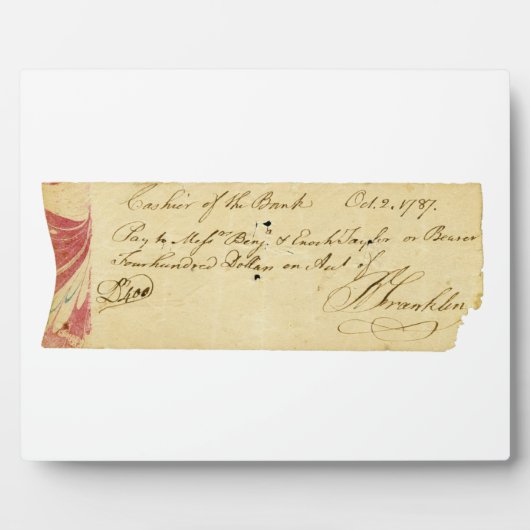 Cashier of the Bank Oct. 2. 1787.
Pay to Messrs Benja & Enoch Taylor or Bearer
Four hundred Dollars on Acct of
Ds 400
B Franklin